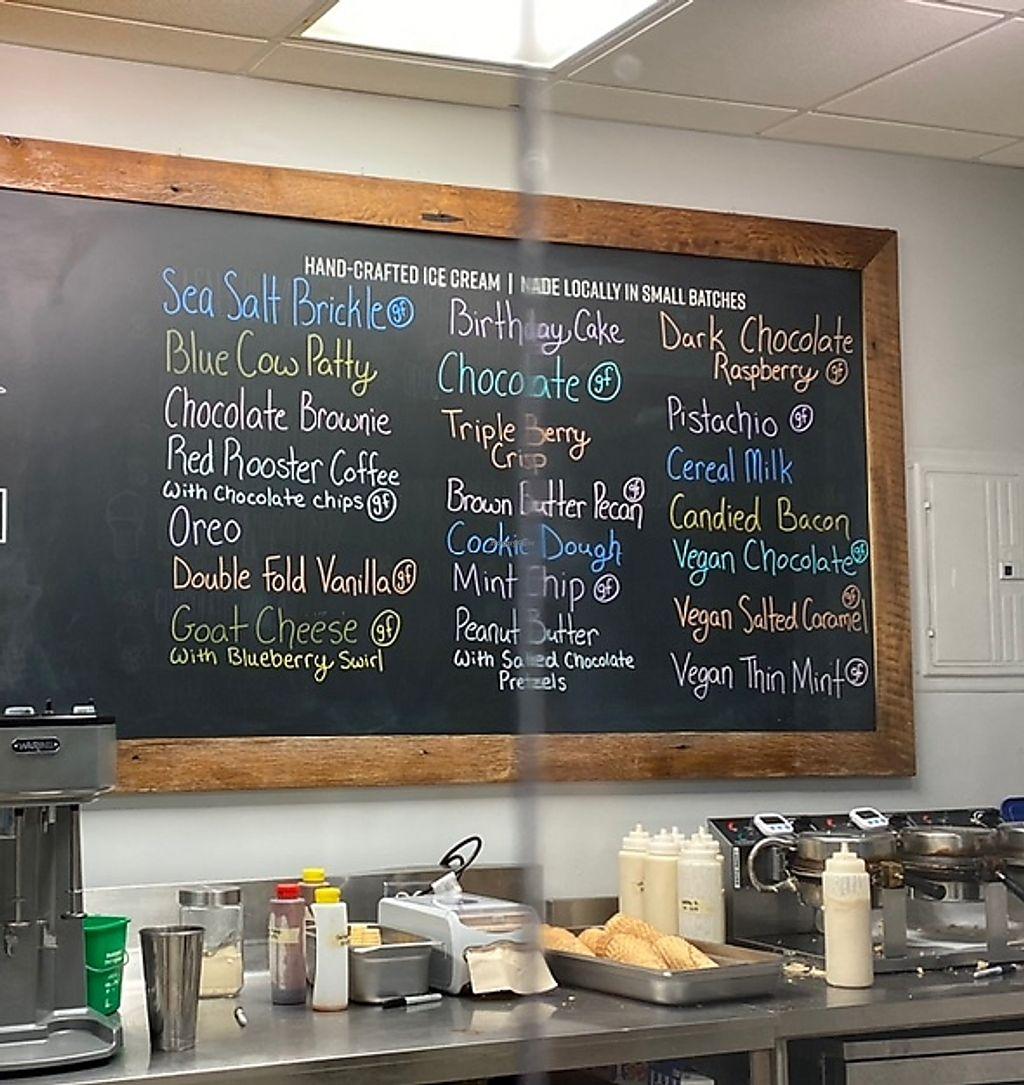 HAND-CRAFTED ICE CREAM | MADE LOCALLY IN SMALL BATCHES
Sea Salt Brickle gf
Blue Cow Patty
Chocolate Brownie
Red Rooster Coffee
with chocolate chips gf
Oreo
Double Fold Vanilla gf
Goat Cheese gf
with Blueberry Swirl
Birthday Cake
Chocolate gf
Triple Berry
Crisp
Brown Butter Pecan gf
Cookie Dough
Mint Chip gf
Peanut Butter
with Salted Chocolate
Pretzels
Dark Chocolate
Raspberry gf
Pistachio gf
Cereal Milk
Candied Bacon
Vegan Chocolate gf
Vegan Salted Caramel gf
Vegan Thin Mint gf
WARING